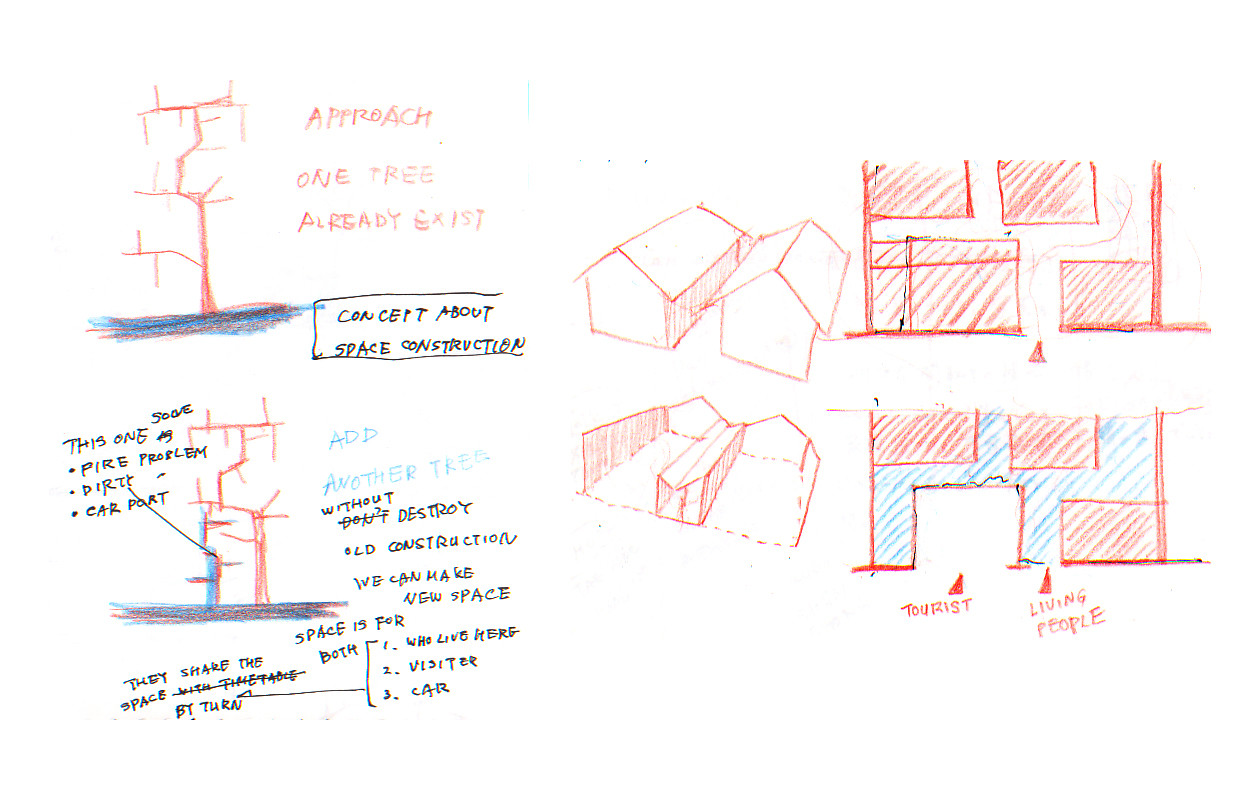 APPROACH
ONE TREE
ALREADY EXIST
CONCEPT ABOUT
SPACE CONSTRUCTION
SOLVE
THIS ONE IS
• FIRE PROBLEM
• DIRTY 〃
• CAR PORT
ADD
ANOTHER TREE
WITHOUT
DON'T DESTROY
OLD CONSTRUCTION
WE CAN MAKE
NEW SPACE
SPACE IS FOR
BOTH
1. WHO LIVE HERE
2. VISITER
3. CAR
THEY SHARE THE
SPACE WITH TIMETABLE
BY TURN
TOURIST
LIVING
PEOPLE